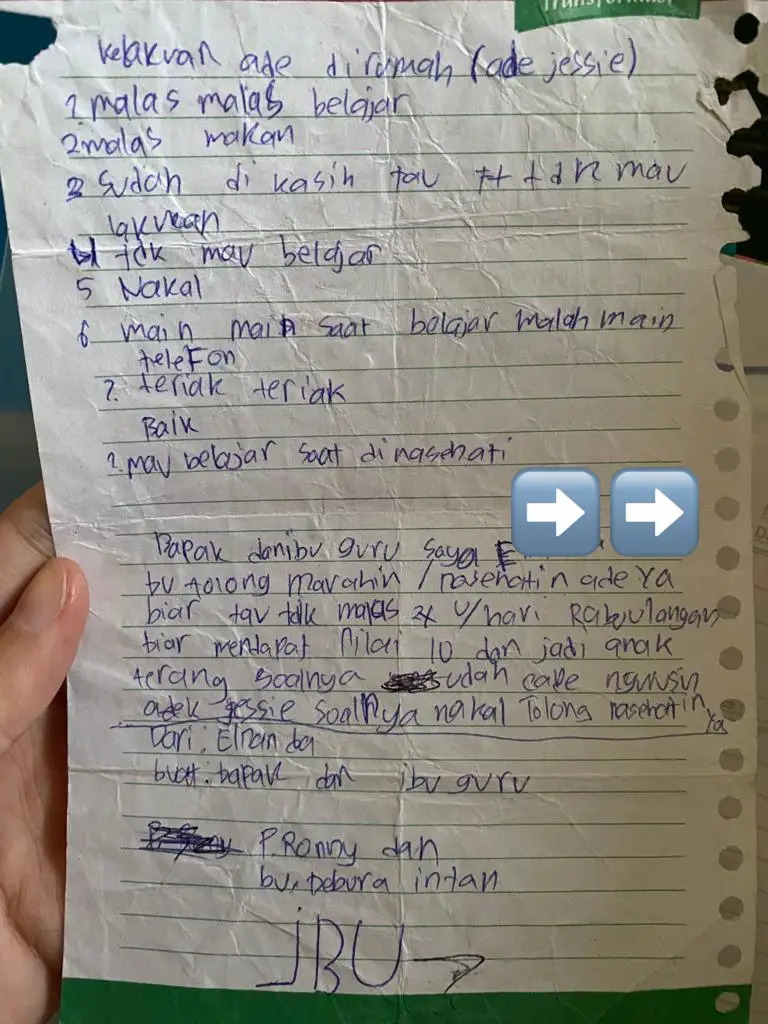 Transformasi
kelakuan ade dirumah (ade jessie)
1. malas malas belajar
2 malas makan
3 Sudah di kasih tau tt tdk mau
lakukan
4 tdk mau belajar
5 Nakal
6 main main saat belajar malah main
telefon
7. teriak teriak
Baik
1. mau belajar saat dinasehati
Bapak danibu guru saya
bu tolong marahin / nasehatin ade ya
biar tau tdk malas u/hari Rabu ulangan
biar mendapat Nilai 10 dan jadi anak
terang soalnya udah cape ngurusin
adek jessie soalnya nakal Tolong nasehatin
ya
Dari: Elnanda
buat: bapak dan ibu guru
P. Ronny dan
bu, Debura intan
JBU